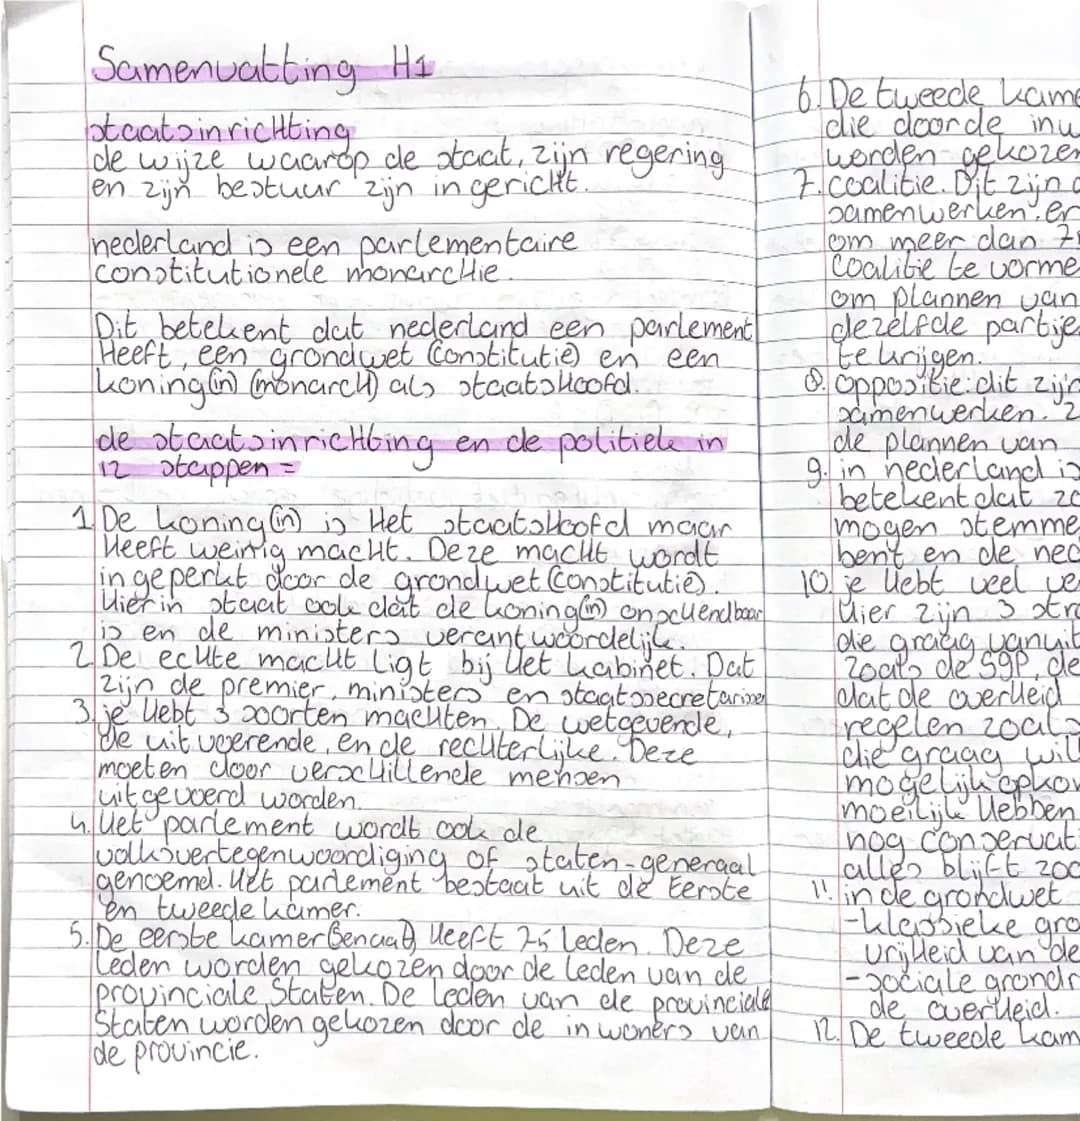 Samenvatting H1
staatsinrichting
de wijze waarop de staat, zijn regering
en zijn bestuur zijn ingericht.
nederland is een parlementaire
constitutionele monarchie.
Dit betekent dat nederland een parlement
Heeft, een grondwet (constitutie) en een
koning(in) (monarch) als staatshoofd.
de staatsinrichting en de politiek in
12 stappen =
1 De koning(in) is Het staatshoofd maar
Heeft weinig macht. Deze macht wordt
ingeperkt door de grondwet (constitutie).
Hierin staat ook dat de koning(in) onschendbaar
is en de ministers verantwoordelijk.
2 De echte macht ligt bij Het kabinet. Dat
zijn de premier, ministers en staatssecretarissen
3. je hebt 3 soorten machten. De wetgevende,
de uitvoerende, en de rechterlijke. Deze
moeten door verschillende mensen
uitgevoerd worden.
4. Het parlement wordt ook de
volksvertegenwoordiging of staten-generaal
genoemd. Het parlement bestaat uit de Eerste
en tweede kamer.
5. De eerste kamer (Senaat) Heeft 75 leden. Deze
leden worden gekozen door de leden van de
provinciale Staten. De leden van de provinciale
Staten worden gekozen door de inwoners van
de provincie.
6. De tweede kame
die door de inw
worden gekozen
7. coalitie. Dit zijn
samenwerken. er
om meer dan
Coalitie te vorme
om plannen van
dezelfde partije
te krijgen.
8. oppositie: dit zijn
samenwerken. 2
de plannen van
9. in nederland is
betekent dat zo
mogen stemme
bent en de ned
10. je hebt veel ve
Hier zijn 3 stro
die graag vanuit
zoals de SGP, de
dat de overheid
regelen zoals
die graag wil
mogelijk opkom
moeilijk Hebben
nog conservat
alles blijft zoo
11. in de grondwet
-klassieke gro
vrijheid van de
-sociale grondr
de overheid.
12. De tweede kam